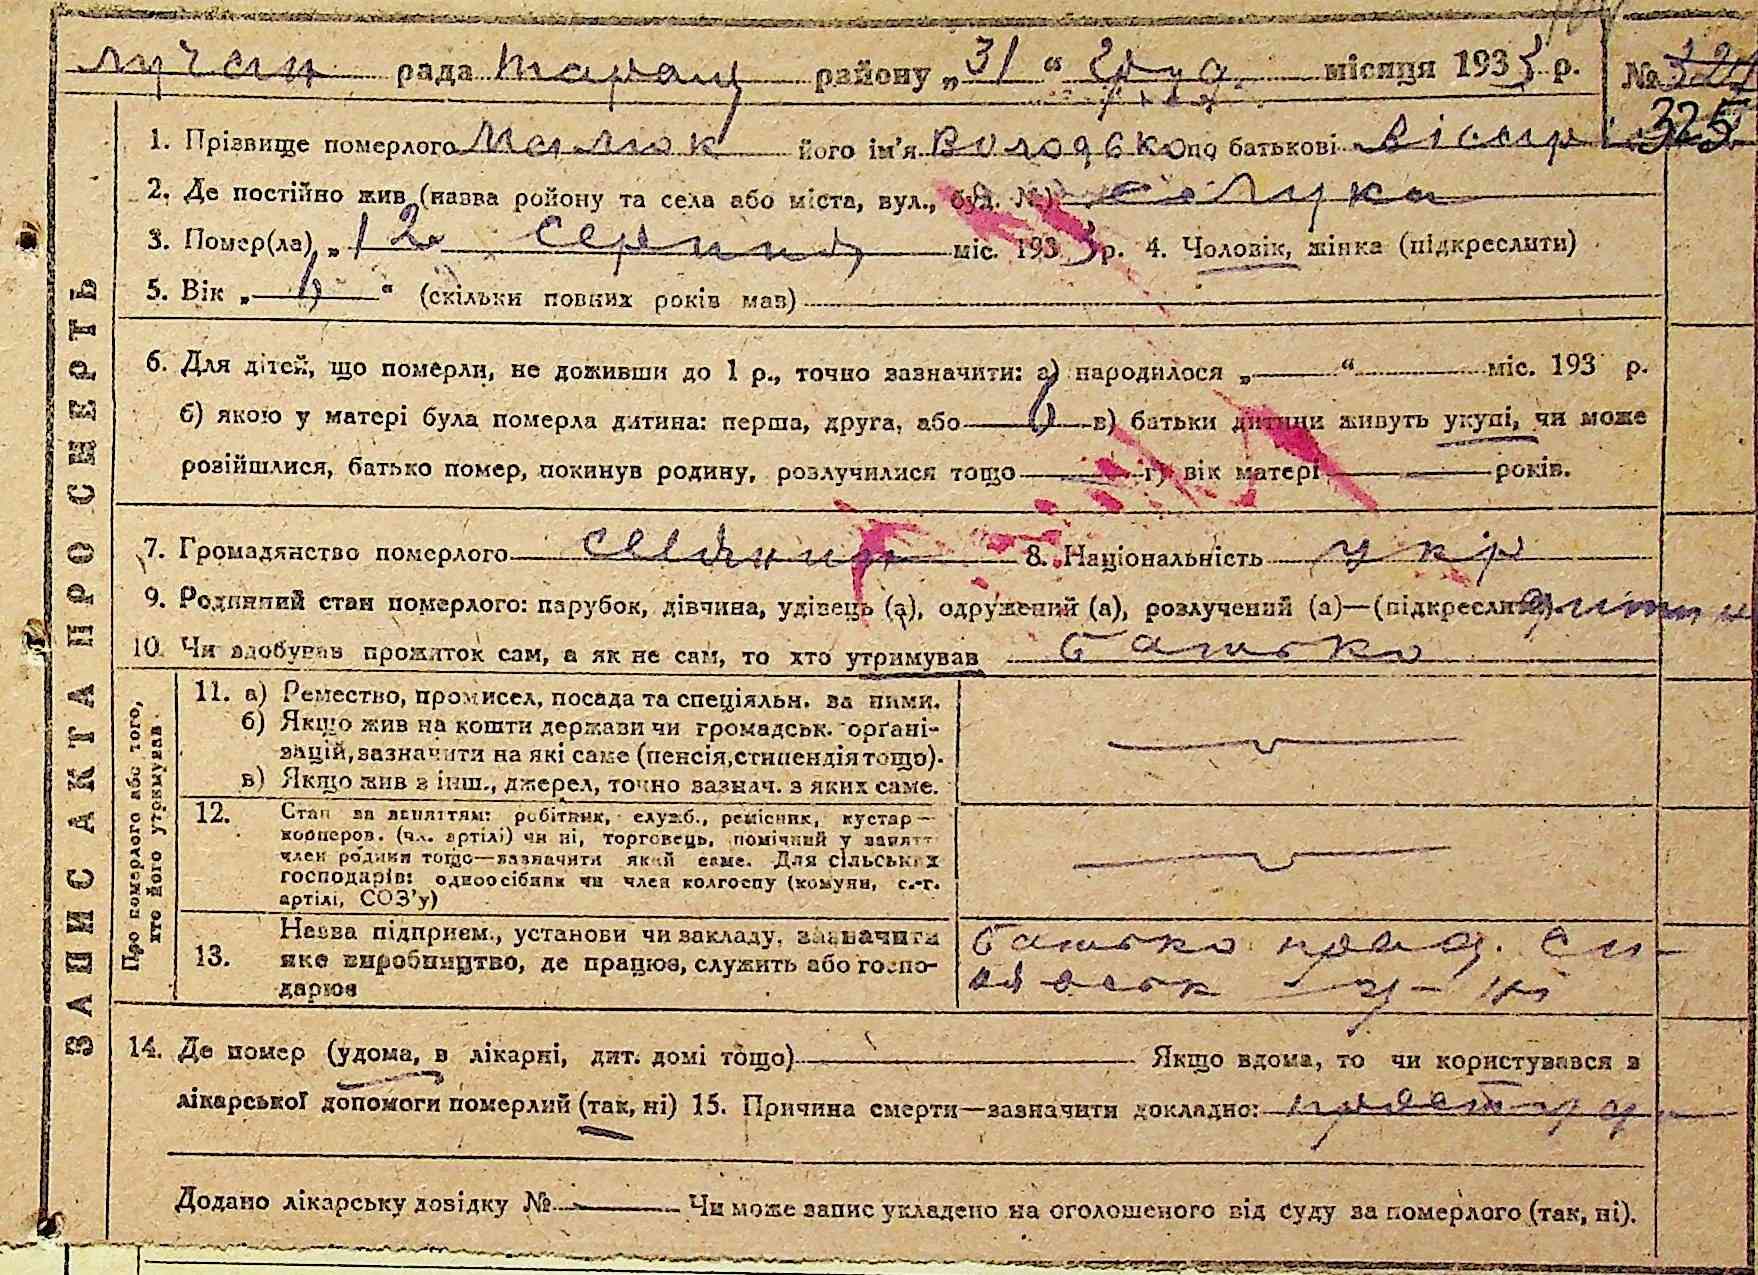 Лучан рада Таращ району „31“ груд. місяця 1933 р. № 324
325
1. Прізвище померлого Малюк його ім'я Володько по батькові
2. Де постійно жив (назва ройону та села або міста, вул., буд. №) Лука
3. Помер(ла) „12 серпня міс. 1933 р. 4. Чоловік, жінка (підкреслити)
5. Вік „6“ (скільки повних років мав)
6. Для дітей, що померли, не доживши до 1 р., точно зазначити: а) народилося „ “ міс. 193 р.
б) якою у матері була померла дитина: перша, друга, або в) батьки дитини живуть укупі, чи може
розійшлися, батько помер, покинув родину, розлучилися тощо г) вік матері років.
7. Громадянство померлого селянин 8. Національність укр
9. Родинний стан померлого: парубок, дівчина, удівець (а), одружений (а), розлучений (а)—(підкреслити)
10. Чи здобував прожиток сам, а як не сам, то хто утримував батько
ЗАПИС АКТА ПРО СМЕРТЬ
Про померлого або того, хто його утримував.
11. а) Ремество, промисел, посада та спеціяльн. за ними.
б) Якщо жив на кошти держави чи громадськ. орґані-
зацій, зазначити на які саме (пенсія, стипендія тощо).
в) Якщо жив з інш., джерел, точно зазнач. з яких саме.
12. Стан за заняттям: робітник, служб., ремісник, кустар—
кооперов. (чл. артілі) чи ні, торговець, помічний у занятт
член родини тощо—зазначити який саме. Для сільських
господарів: одноосібник чи член колгоспу (комуни, с.-г.
артілі, СОЗ'у)
13. Назва підприєм., установи чи закладу, зазначити
яке виробництво, де працює, служить або госпо-
дарює
батько
14. Де помер (удома, в лікарні, дит. домі тощо) Якщо вдома, то чи користувався з
лікарської допомоги померлий (так, ні) 15. Причина смерти—зазначити докладно:
Додано лікарську довідку № Чи може запис укладено на оголошеного від суду за померлого (так, ні).